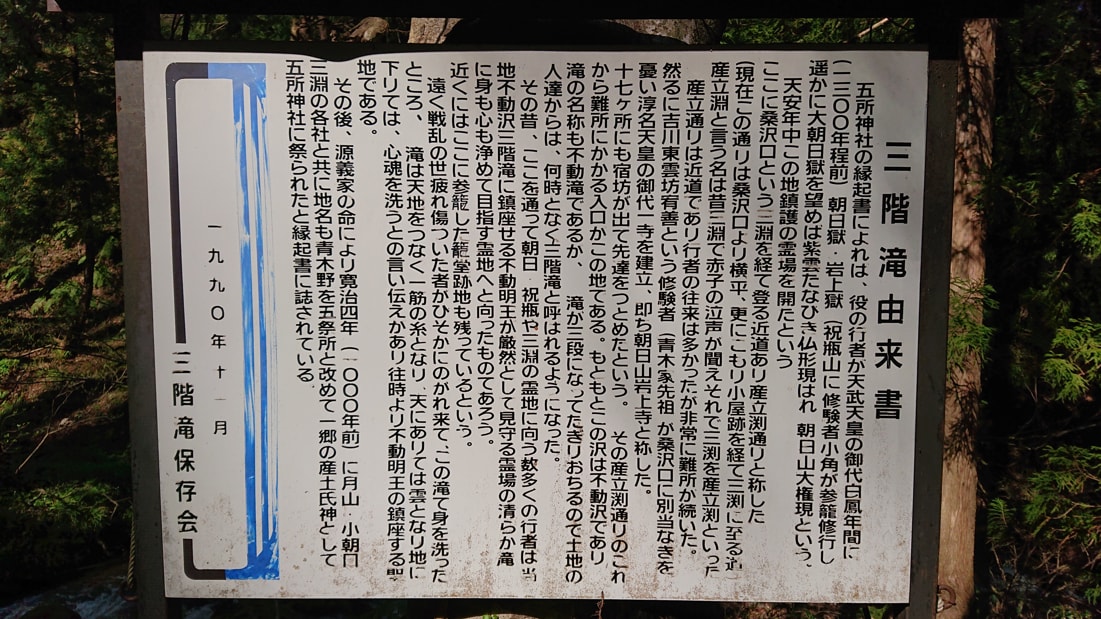 三階滝由来書
五所神社の縁起書によれは、役の行者が天武天皇の御代白鳳年間に
(一三〇〇年程前) 朝日獄・岩上獄 (祝瓶山に修験者小角が参籠修行し
遥かに大朝日獄を望めば紫雲たなびき仏形現はれ 朝日山大権現という、
天安年中この地鎮護の霊場を開たという
ここに桑沢口という三淵を経て登る近道あり産立渕通りと称した
(現在この通りは桑沢口より横平、更にこもり小屋跡を経て三渕に至る道
産立淵と言う名は昔三淵で赤子の泣声が聞えそれで三渕を産立渕といった
産立通りは近道であり行者の往来は多かったが非常に難所が続いた。
然るに吉川東雲坊有善という修験者(青木家先祖 が桑沢口に別当なきを
憂い淳名天皇の御代一寺を建立、即ち朝日山岩上寺と称した。
十七ヶ所にも宿坊が出て先達をつとめたという。 その産立渕通りのこれ
から難所にかかる入口かこの地てある。もともとこの沢は不動沢であり
滝の名称も不動滝であるか、 滝が三段になってたぎりおちるので土地の
人達からは、何時となく三階滝と呼はれるようになった。
その昔、ここを通って朝日 祝瓶や三淵の霊地に向う数多くの行者は当
地不動沢三階滝に鎮座せる不動明王が厳然として見守る霊場の清らか滝
に身も心も浄めて目指す霊地へと向ったものてあろう。
近くにはここに参籠した籠堂跡地も残っているという。
遠く戦乱の世疲れ傷ついた者がひそかにのがれ来て、この滝て身を洗った
ところ、 滝は天地をつなく一筋の糸となり、天にありては雲となり地に
下りては、心魂を洗うとの言い伝えかあり往時より不動明王の鎮座する聖
地である。
その後、源義家の命により寛治四年(一〇〇〇年前)に月山・小朝日
三淵の各社と共に地名も青木野を五祭所と改めて一郷の産土氏神として
五所神社に祭られたと縁起書に誌されている。
一九九〇年十一月
三階滝保存会